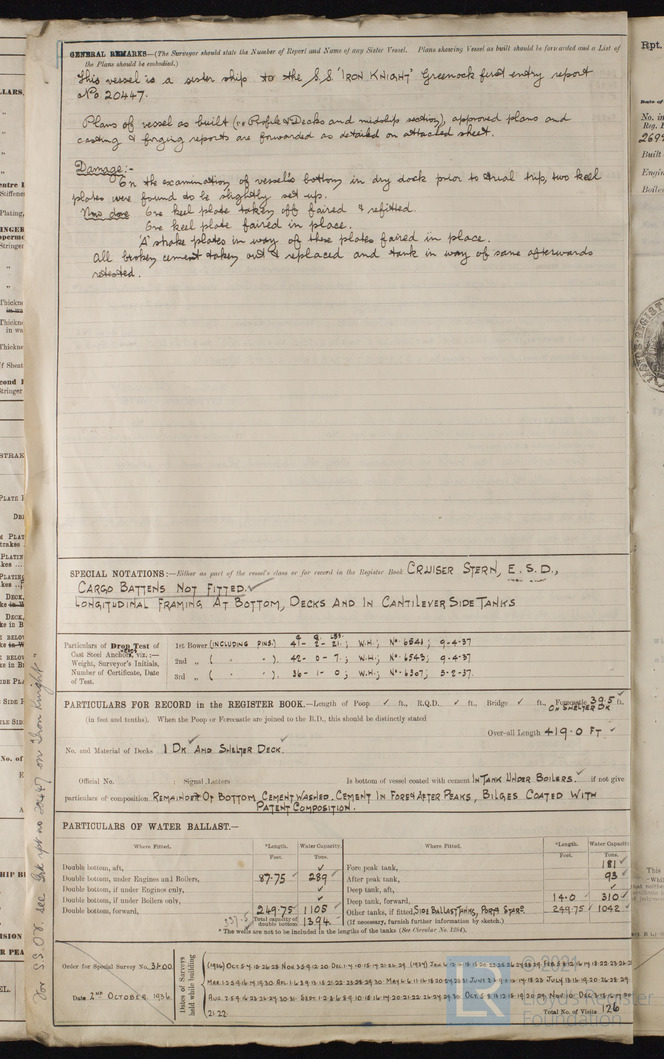 GENERAL REMARKS—(The Surveyor should state the Number of Report and Name of any Sister Vessel. Plans showing Vessel as built should be forwarded and a List of
the Plans should be embodied.)
This vessel is a sister ship to the S.S. "IRON KNIGHT" Greenock first entry report
No. 20447.
Plans of vessel as built (i.e Profile & Decks and midship section), approved plans and
casting & forging reports are forwarded as detailed on attached sheet.
Damage:-
On the examination of vessel's bottom in dry dock prior to trial trip, two keel
plates were found to be slightly set up.
Now done One keel plate taken off faired & refitted.
One keel plate faired in place.
'A' strake plates in way of these plates faired in place.
All broken cement taken out & replaced and tank in way of same afterwards
retested.
SPECIAL NOTATIONS:—Either as part of the vessel's class or for record in the Register Book CRUISER STERN, E.S.D.,
CARGO BATTENS NOT FITTED.
LONGITUDINAL FRAMING AT BOTTOM, DECKS AND IN CANTILEVER SIDE TANKS
Particulars of Drop Test of
Cast Steel Anchors, viz.:—
Weight, Surveyor's Initials,
Number of Certificate, Date
of Test.
1st Bower (INCLUDING PINS.) 41-2-21; W.H.; No. 6541; 9-4-37
2nd " ( " " ). 42-0-7; W.H.; No. 6543; 9-4-37
3rd " ( " " ). 36-1-0; W.H.; No. 6307; 3-2-37.
PARTICULARS FOR RECORD in the REGISTER BOOK.—Length of Poop ft., R.Q.D. ft., Bridge ft., Forecastle 39.5 ft.
ON SHELTER DK
(in feet and tenths). When the Poop or Forecastle are joined to the B.D., this should be distinctly stated
Over-all Length 419.0 FT.
No. and Material of Decks 1 DK AND SHELTER DECK.
Official No. : Signal Letters Is bottom of vessel coated with cement IN TANK UNDER BOILERS. if not give
particulars of composition REMAINDER OF BOTTOM CEMENT WASHED. CEMENT IN FORE & AFTER PEAKS, BILGES COATED WITH
PATENT COMPOSITION.
PARTICULARS OF WATER BALLAST.—
Where Fitted. *Length. Water Capacity. Where Fitted. *Length. Water Capacity
Feet. Tons. Feet. Tons.
Double bottom, aft, Fore peak tank, 181
Double bottom, under Engines and Boilers, 87.75 289 After peak tank, 93
Double bottom, if under Engines only, Deep tank, aft,
Double bottom, if under Boilers only, Deep tank, forward, 14.0 310
Double bottom, forward, 249.75 1105 Other tanks, if fitted, SIDE BALLAST TANKS, PORT & STARD. 249.75 1042
337.5 Total capacity of double bottom 1394 (If necessary, furnish further information by sketch.)
* The wells are not to be included in the lengths of the tanks (See Circular No. 1284).
Order for Special Survey No. 3400
Date 2ND OCTOBER 1936
Dates of Surveys
held while building
Total No. of Visits 126
For S.S. Off. see Grk rpt no 20447 on "Iron Knight"
© 2021
LR
Lloyd's Register
Foundation
Rpt.